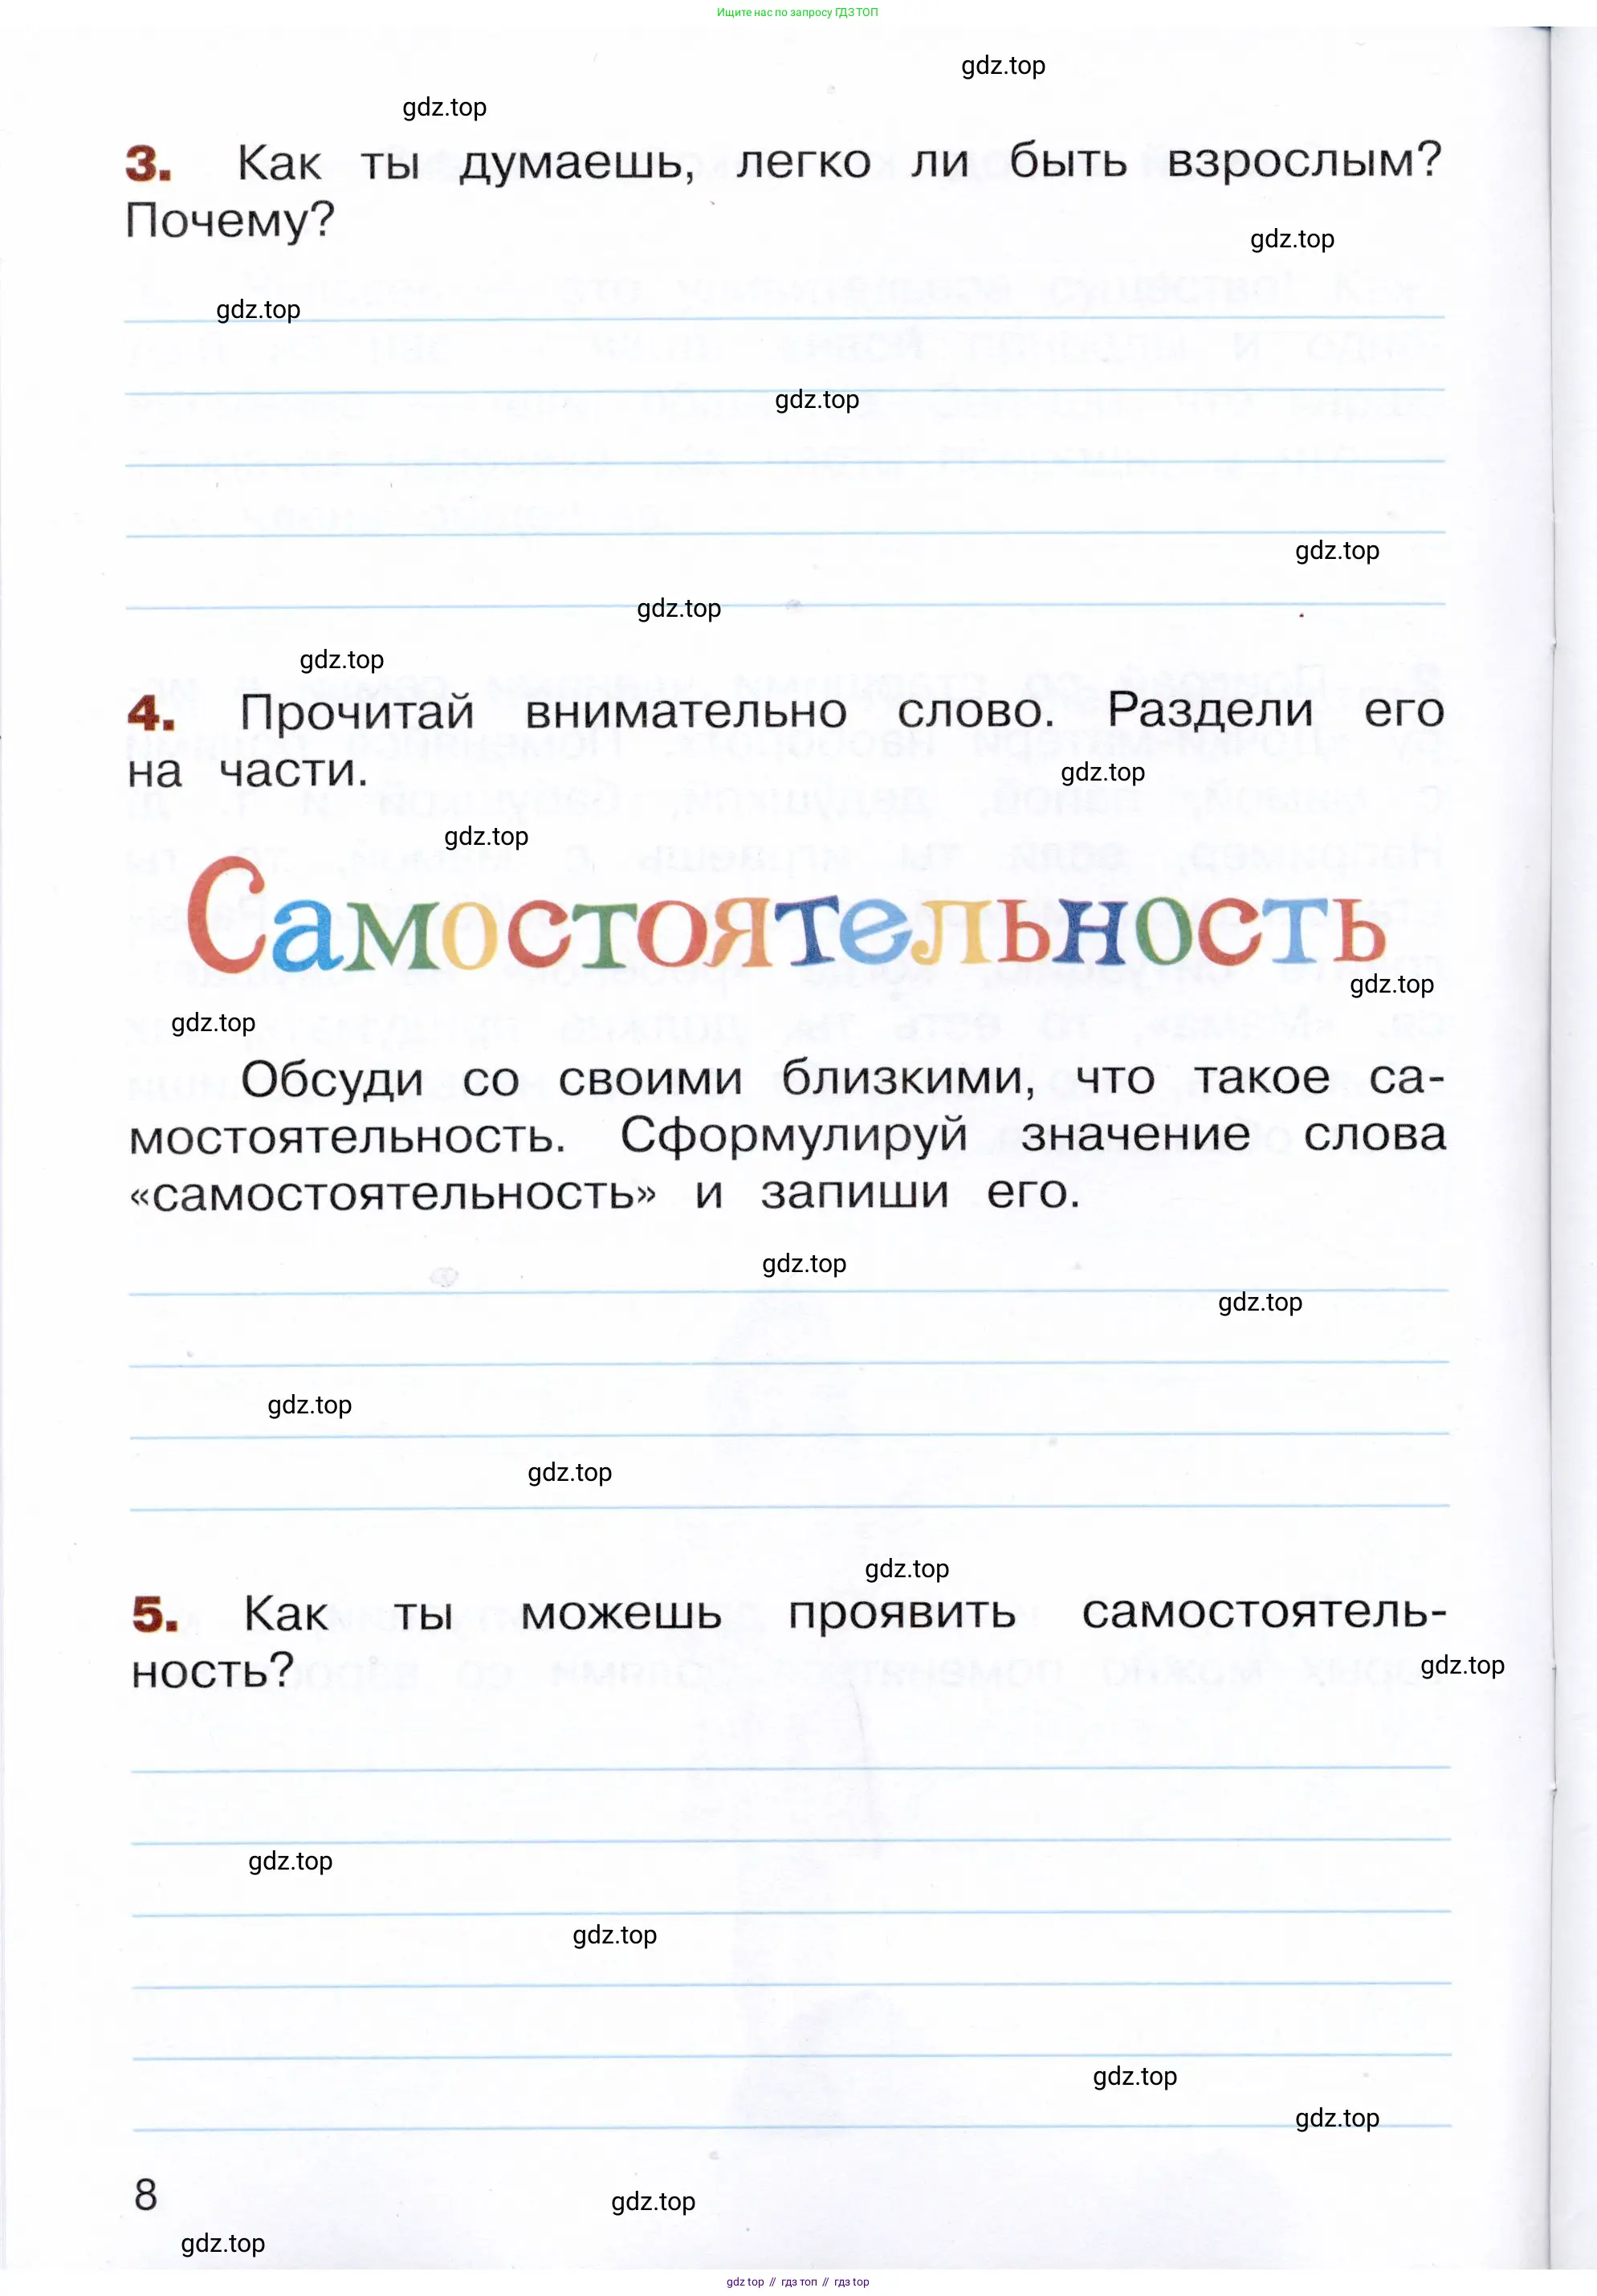 Ищите нас по запросу ГДЗ ТОП
gdz.top
gdz.top
3. Как ты думаешь, легко ли быть взрослым?
Почему?
gdz.top
gdz.top
gdz.top
gdz.top
gdz.top
gdz.top
4. Прочитай внимательно слово. Раздели его
на части.
gdz.top
gdz.top
Самостоятельность
gdz.top
gdz.top
Обсуди со своими близкими, что такое са-
мостоятельность. Сформулируй значение слова
«самостоятельность» и запиши его.
gdz.top
gdz.top
gdz.top
gdz.top
gdz.top
5. Как ты можешь проявить самостоятель-
ность?
gdz.top
gdz.top
gdz.top
gdz.top
gdz.top
8
gdz.top
gdz.top
gdz top // гдз топ // гдз top